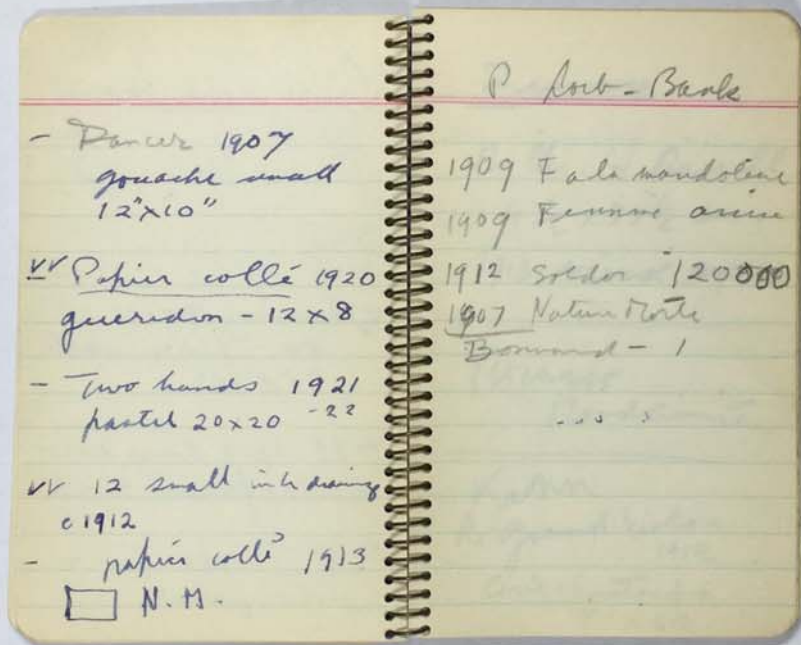 - Dancer 1907
gouache small
12"x10"
vv Papier collé 1920
gueridon - 12 x 8
- Two hands 1921
pastel 20x20 -22
vv 12 small ink drawings
c 1912
- papier collé 1913
N.M.
P - Bank
1909 F a la mandoline
1909 Femme assise
1912 120000
1907 Nature Morte
Bonnard - 1